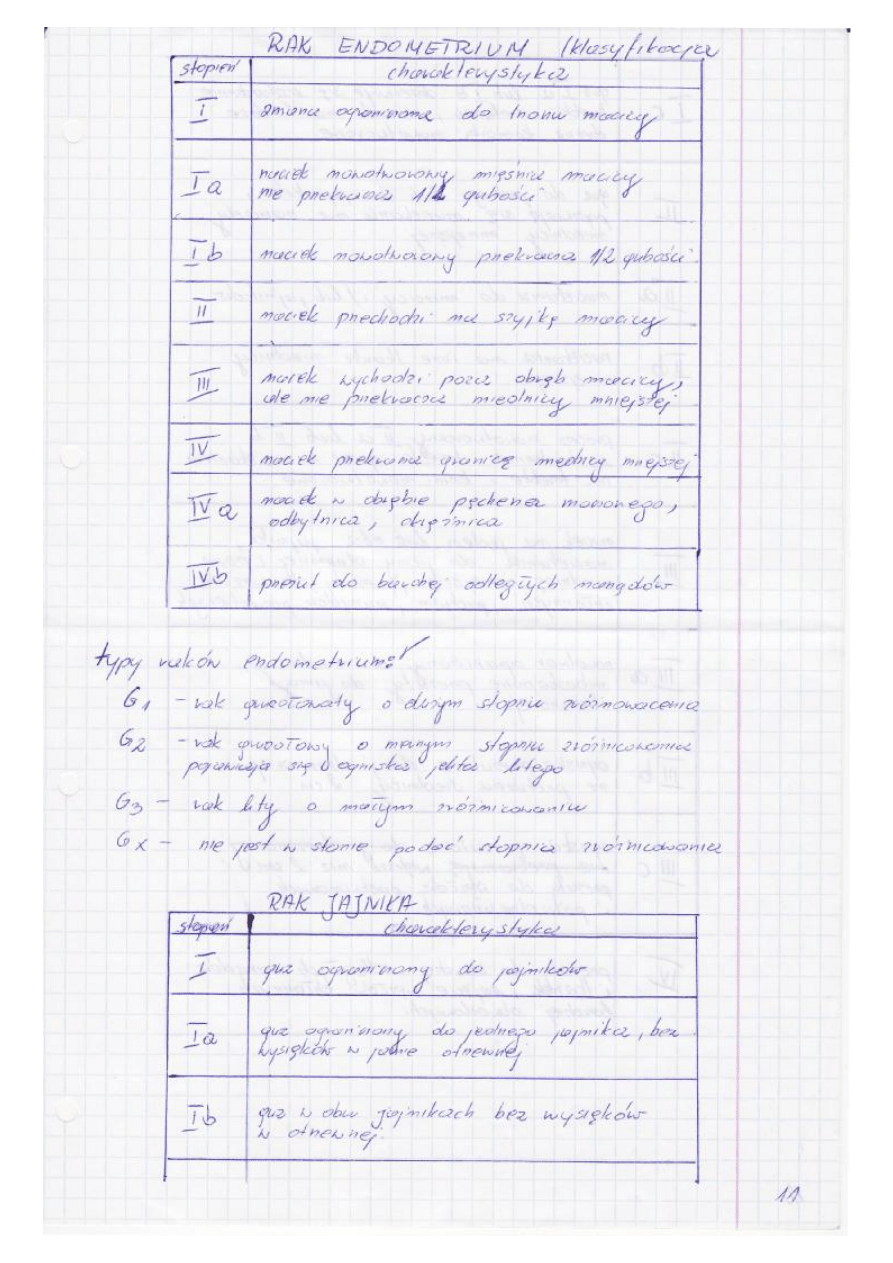 RAK ENDOMETRIUM /klasyfikacja
stopień charakterystyka
I zmiana ograniczona do trzonu macicy
Ia naciek nowotworowy mięśnia macicy
nie przekracza 1/2 grubości
Ib naciek nowotworowy przekracza 1/2 grubości
II naciek przechodzi na szyjkę macicy
III naciek wychodzi poza obręb macicy,
ale nie przekracza miednicy mniejszej
IV naciek przekracza granicę miednicy mniejszej
IVa naciek w obrębie pęcherza moczowego,
odbytnica, okrężnica
IVb przerzut do bardziej odległych narządów
typy raków endometrium:
G1 - rak gruczołowaty o dużym stopniu zróżnicowania
G2 - rak gruczołowy o mernym stopniu zróżnicowania
pojawiają się ogniska litego
G3 - rak lity o małym zróżnicowaniu
GX - nie jest w stanie podać stopnia zróżnicowania
RAK JAJNIKA
stopień charakterystyka
I guz ograniczony do jajników
Ia guz ograniczony do jednego jajnika, bez
wysięków w jamie otrzewnej
Ib guz w obu jajnikach bez wysięków
w otrzewnej.
11